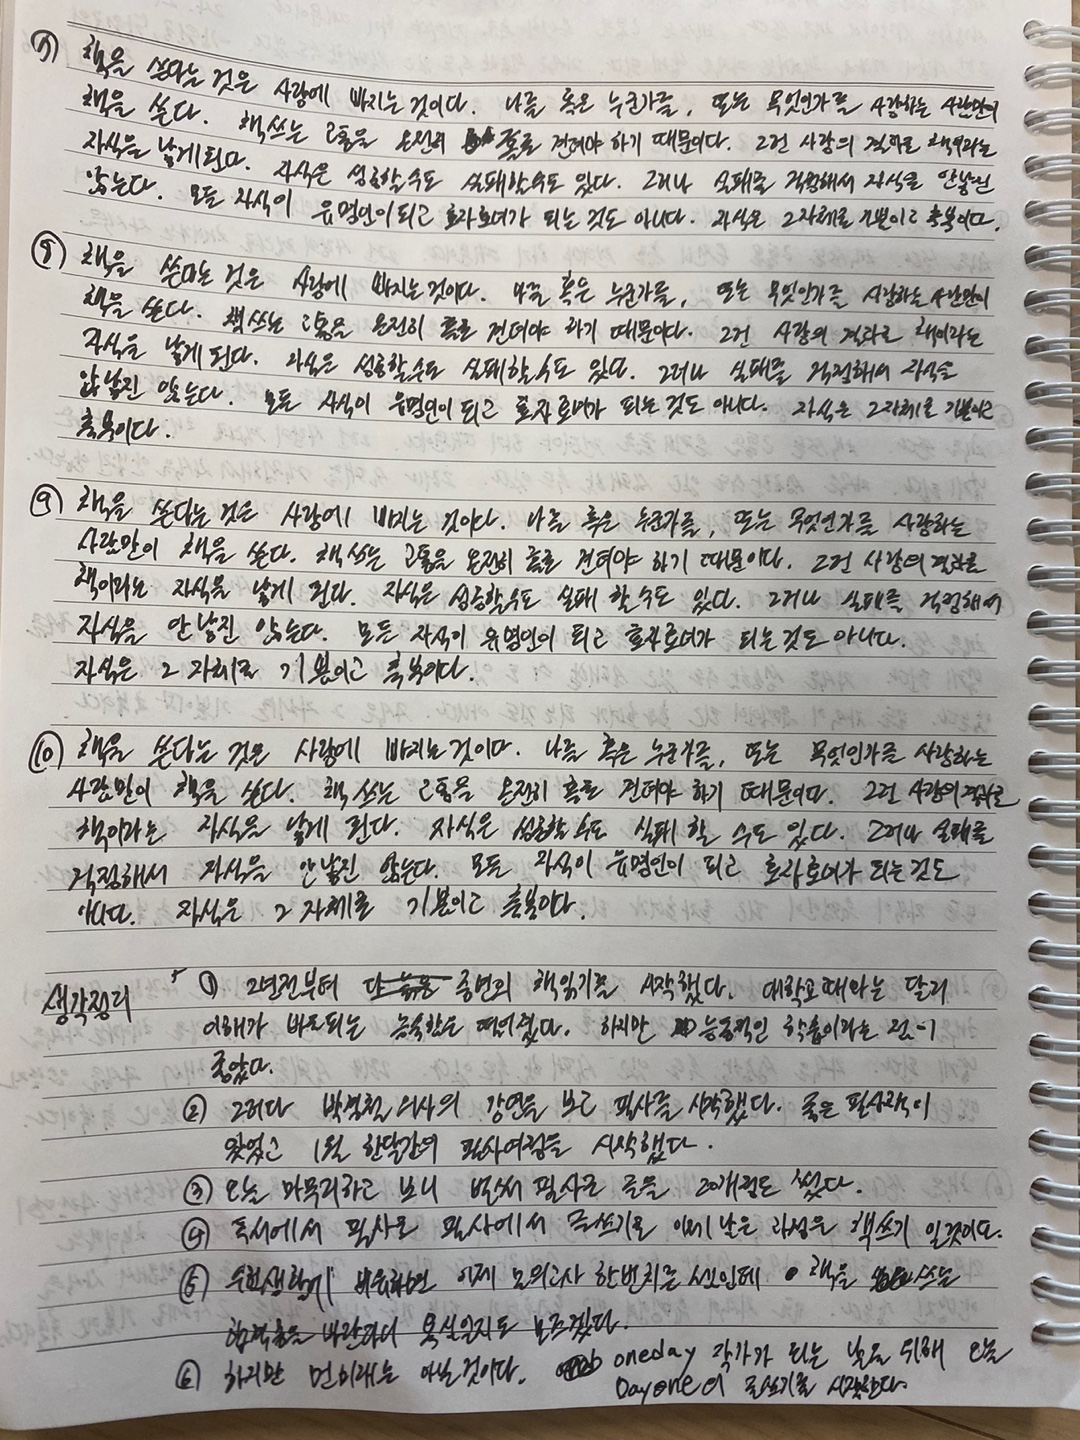 ⑦ 책을 쓴다는 것은 사랑에 빠지는 것이다. 나를 혹은 누군가를, 또는 무엇인가를 사랑하는 사람만이
책을 쓴다. 책 쓰는 고통을 온전히 홀로 견뎌야 하기 때문이다. 그런 사랑의 결과로 책이라는
자식을 낳게 된다. 자식은 성공할 수도 실패할 수도 있다. 그러나 실패를 걱정해서 자식을 안 낳진
않는다. 모든 자식이 유명인이 되고 효자효녀가 되는 것도 아니다. 자식은 그 자체로 기쁨이고 축복이다.
⑧ 책을 쓴다는 것은 사랑에 빠지는 것이다. 나를 혹은 누군가를, 또는 무엇인가를 사랑하는 사람만이
책을 쓴다. 책 쓰는 고통을 온전히 홀로 견뎌야 하기 때문이다. 그런 사랑의 결과로 책이라는
자식을 낳게 된다. 자식은 성공할 수도 실패할 수도 있다. 그러나 실패를 걱정해서 자식을
안 낳진 않는다. 모든 자식이 유명인이 되고 효자효녀가 되는 것도 아니다. 자식은 그 자체로 기쁨이고
축복이다.
⑨ 책을 쓴다는 것은 사랑에 빠지는 것이다. 나를 혹은 누군가를, 또는 무엇인가를 사랑하는
사람만이 책을 쓴다. 책 쓰는 고통을 온전히 홀로 견뎌야 하기 때문이다. 그런 사랑의 결과로
책이라는 자식을 낳게 된다. 자식은 성공할 수도 실패 할 수도 있다. 그러나 실패를 걱정해서
자식을 안 낳진 않는다. 모든 자식이 유명인이 되고 효자효녀가 되는 것도 아니다.
자식은 그 자체로 기쁨이고 축복이다.
⑩ 책을 쓴다는 것은 사랑에 빠지는 것이다. 나를 혹은 누군가를, 또는 무엇인가를 사랑하는
사람만이 책을 쓴다. 책 쓰는 고통을 온전히 홀로 견뎌야 하기 때문이다. 그런 사랑의 결과로
책이라는 자식을 낳게 된다. 자식은 성공할 수도 실패 할 수도 있다. 그러나 실패를
걱정해서 자식을 안 낳진 않는다. 모든 자식이 유명인이 되고 효자효녀가 되는 것도
아니다. 자식은 그 자체로 기쁨이고 축복이다.
생각정리 ① 2년전부터 책읽기를 시작했다. 대학교 때와는 달리
이해가 바로되는 능숙함은 떨어졌다. 하지만 능동적인 학습이라는 점이
좋았다.
② 그러다 의사의 강연을 보고 필사를 시작했다. 좋은 필사책이
있었고 1월 한달간의 필사여정을 시작했다.
③ 오늘 마무리하고 보니 벌써 필사로 글을 20개정도 썼다.
④ 독서에서 필사로 필사에서 글쓰기로 이제 남은 과정은 책쓰기 일것이다.
⑤ 수험생활에 비유하면 이제 모의고사 한번치른 셈인데 책을 쓰는
합격증을 바란다니 욕심일지도 모르겠다.
⑥ 하지만 먼미래는 아닐 것이다. oneday 작가가 되는 날을 위해 오늘
Day one의 글쓰기를 시작한다.